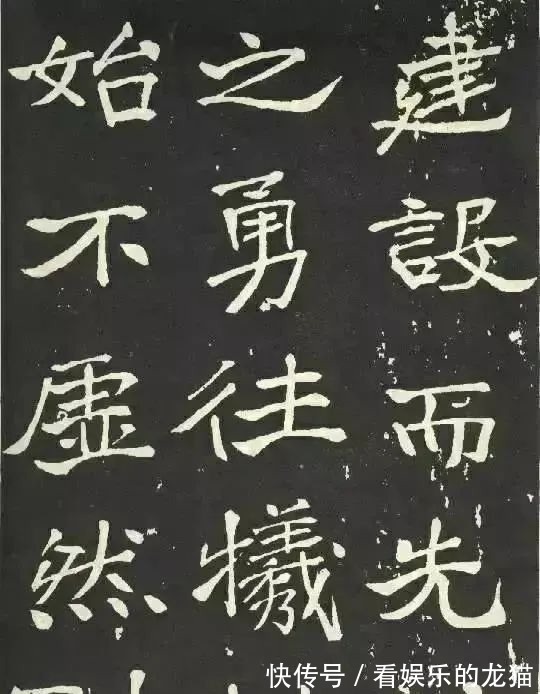 建設而先
之勇往犧
始不虛然
快传号/看娱乐的龙猫